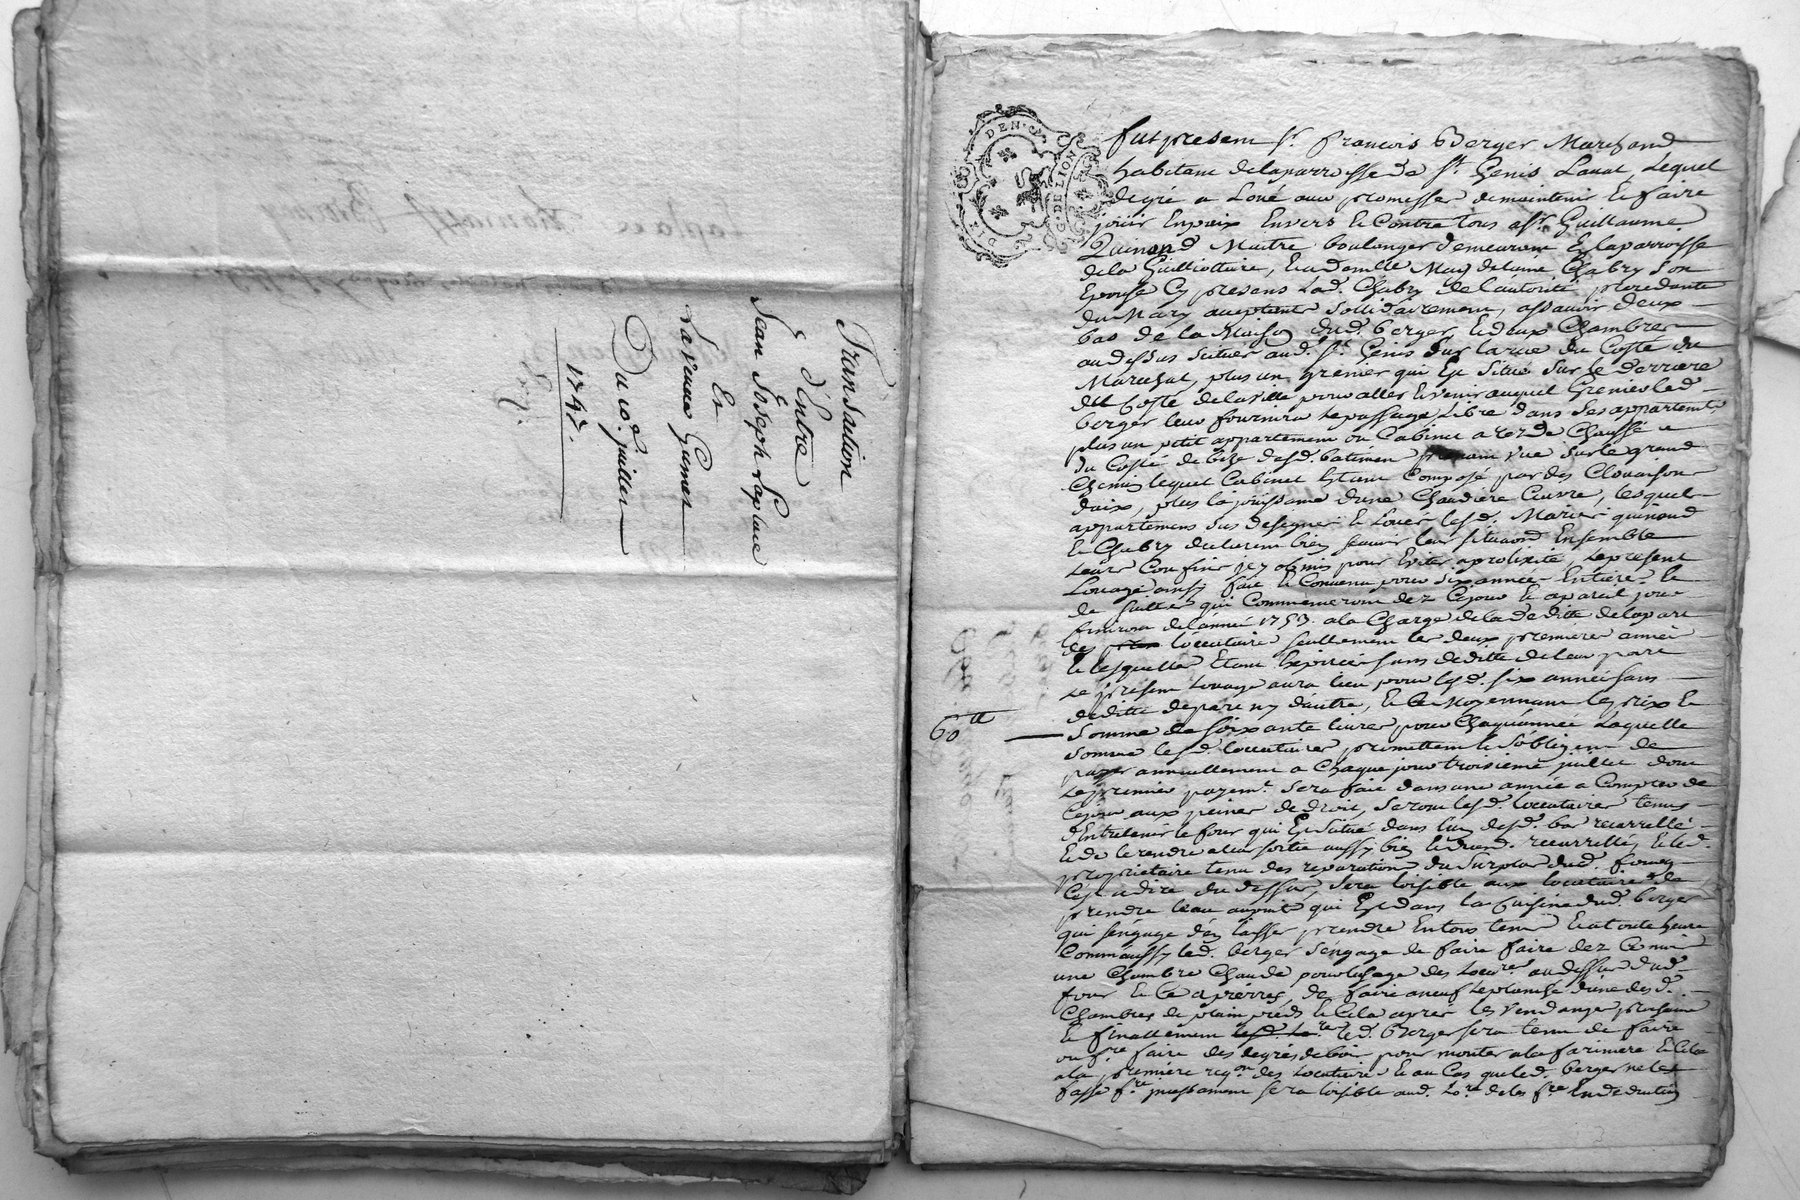 Transaction
d'Entre
Jean Joseph Laplace
Et
Du 10e. juillet
1747.
DEN. G. DE LION
fut present Sr. francois Berger Marchand
habitant dela parroisse de St. Genis Laval, Lequel
degré a Loué avec promesse de maintenir & faire
jöuir En paix Envers & Contre tous a Sr. Guillaume
Quinond Maitre boulanger demeurant En la parroisse
de la Guillottiere, & a demlle Magdelaine Chabry Son
Epouse Cy presens Lad. Chabry de l'autorité procedante
du Mary acceptants Sollidairement, assavoir deux
bas de la Maison dud. berger, & deux Chambres
au dessus Scitués aud. St. Genis Sur la rue du Costé du
Marechal, plus un grenier qui Est Situé Sur le derriere
du Costé de la ville pour aller & venir auquel Grenier led.
berger leur fournira le passage Libre dans Ses appartemts.
plus un petit appartement ou Cabinet a rez de Chaussé
du Costé de bize desd. batimen prenant vue Sur le grand
Chemin lequel Cabinet Etant Composé par des Cloaisons
daix, plus la jöuissance d'une Chaudiere Cuivre, lesquels
appartemens Sus designés & Loués lesd. Mariés quinond
& Chabry declarent bien Scavoir leur Situaõn Ensemble
Leurs Confins jcy obmis pour Eviter a prolixité Le present
Louage ainsy fait & Convenu pour Six années Entieres &
de Suitte qui Commenceront dez Cejour & a pareil jour
finiront de l'année 1753. a la Charge de la deditte de la part
des locataires Seullement les deux premieres années
& lesquelles Etant Expirées Sans deditte de leur part
Le present Louage aura lieu pour lesd. Six années Sans
deditte de part ny d'autre, & Ce Moyennant le prix &
60 ₶ Somme de Soixante livres pour Chaq'année Laquelle
Somme lesd. locataires promettent & S'obligent de
payer annuellement a Chaque jour troisieme juillet dont
Le premier payemt. Sera fait dans une année a Compter de
Cejour aux peines de droit, Seront lesd. locataires tenus
d'Entretenir le four qui Est Situé dans l'un desd. bas recarrellé
& de le rendre a leur Sortie aussy bien &
proprietaire tenu des reparations du Surplus dud. four
C'est a dire du dessus, Sera loisible aux locataires de
prendre l'eau au puit qui Est dans la Cuisine dud. berger
qui S'engage d'en laisser prendre En tous tems & a toute heure
Comm'aussy led. berger S'engage de faire faire dez Ce mois
une Chambre Chaude pour l'usage des Locres. au dessus dud.
four & de faire a neuf le planché d'une desd.
Chambres de plain pied & Cela aprés les Vendanges prochaine
& finallement led. Berger Sera tenu de faire
ou fre. faire des degrés de bois pour monter a la fariniere & Cela
a la premiere reqon. des Locataires & au Cas que led. berger ne les
fasse fre. jncessament Sera loisible aud. Lores. de les fre. En deduction